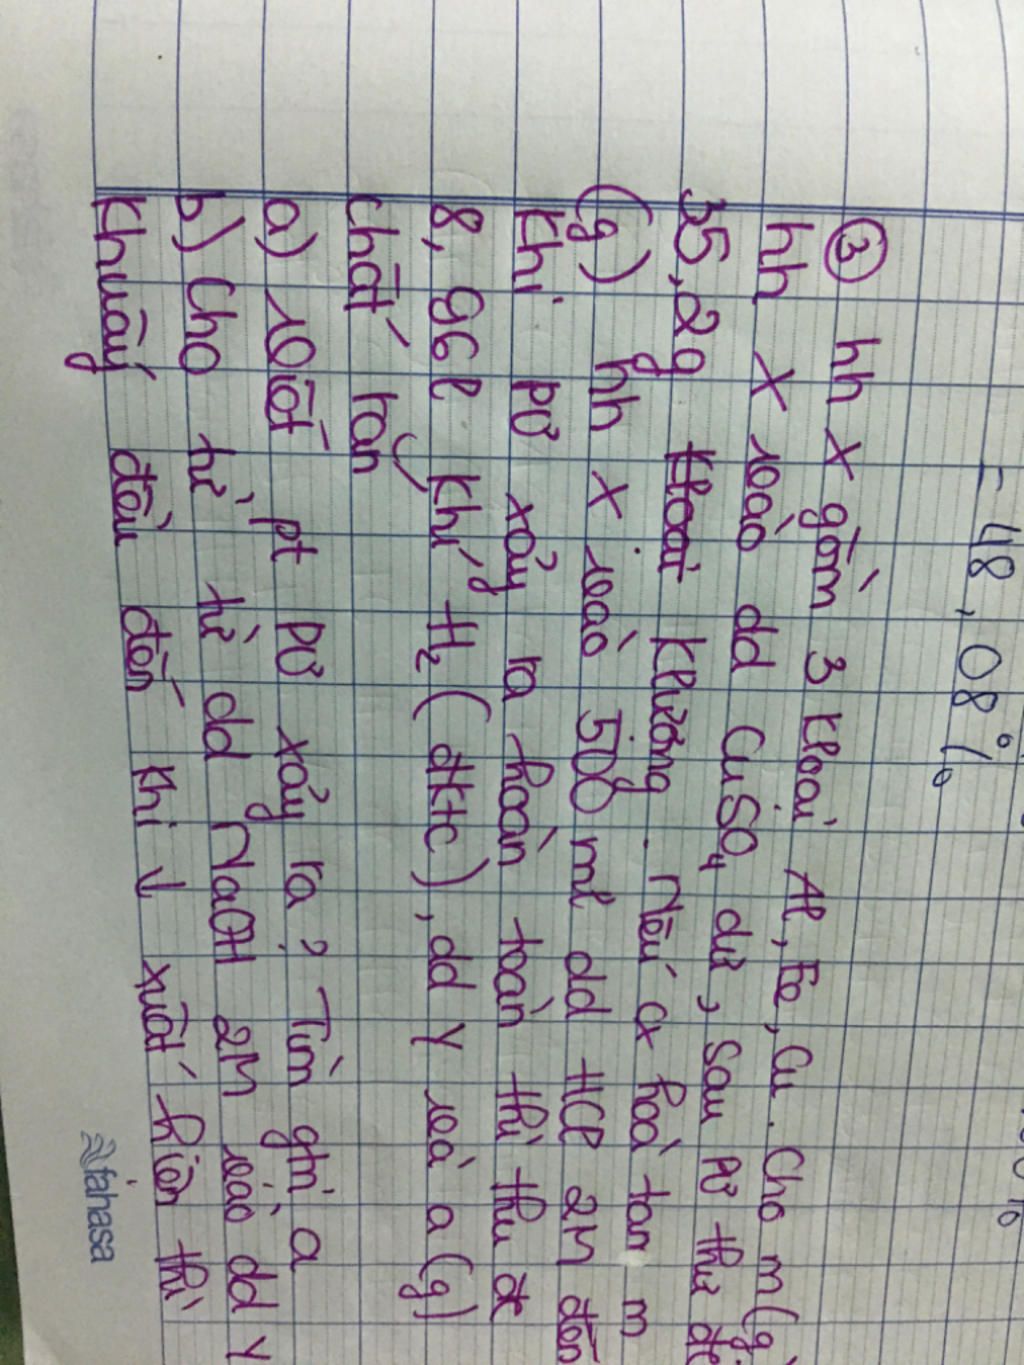 = 48,08%
③ hh X gồm 3 kloại Al, Fe, Cu. Cho m(g)
hh X vào dd CuSO4 dư, sau pứ thu đc
35,2g kloại klượng. Nếu a hoà tan m
(g) hh X vào 500 ml dd HCl 2M đến
khi pứ xảy ra hoàn toàn thì thu đc
8,96l khí H2 (đktc), dd Y và a(g)
chất rắn
a) Viết pt pứ xảy ra? Tìm gtrị a
b) Cho từ từ dd NaOH 2M vào dd Y
khuấy đều đến khi ↓ xuất hiện thì
fahasa